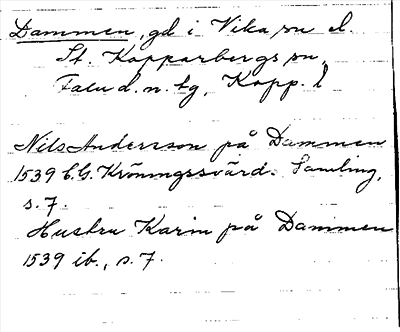 Dammen, gd i Vika sn el.
St. Kopparbergs sn,
Falu d.n. tg, Kopp. l
Nils Andersson på Dammen
1539 C.G. Kröningssvärd. Samling,
s. 7.
Hustru Karin på Dammen
1539 ib., s. 7.